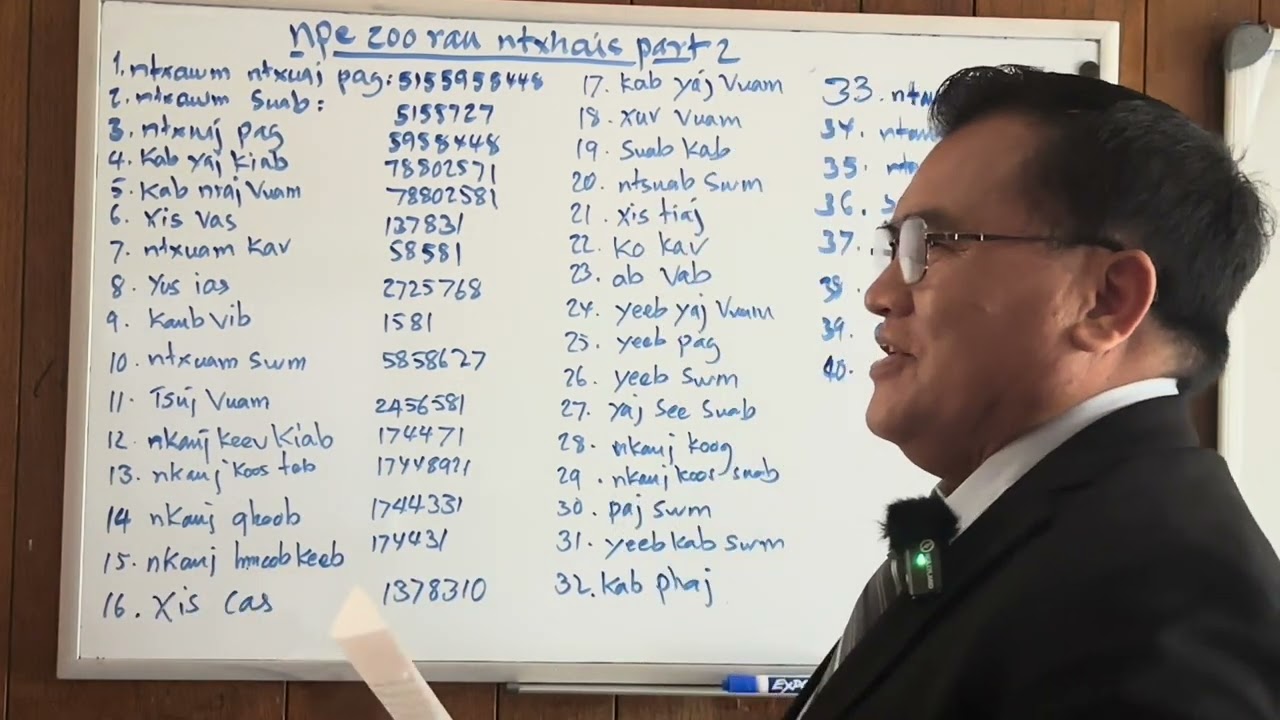 npe zoo rau ntxhais part 2
1. ntxawm ntxuaj pag: 5155958448
2. ntxawm Suab: 5155727
3. ntxuaj pag 5958448
4. Kab yaj Kiab 78802571
5. Kab nraj Vuam 78802581
6. Xis vas 137831
7. ntxuam Kav 58581
8. Yus ias 2725768
9. Kaub Vib 1581
10. ntxuam Swm 5858627
11. Tsuj Vuam 2456581
12. nkauj keev Kiab 174471
13. nkauj koos tab 17448921
14 nkauj qhoob 1744331
15. nkauj hmoob keeb 174431
16. Xis Cas 1378310
17. Kab yaj Vuam
18. xuv Vuam
19. Suab Kab
20. ntsuab Swm
21. xis tiaj
22. Ko Kav
23. ab Vab
24. yeeb yaj Vuam
25. yeeb pag
26. yeeb Swm
27. yaj See Suab
28. nkauj koog
29. nkauj koos suab
30. paj swm
31. yeeb kab swm
32. kab phaj
33.
34.
35.
36.
37.
38.
39.
40.
EXPO